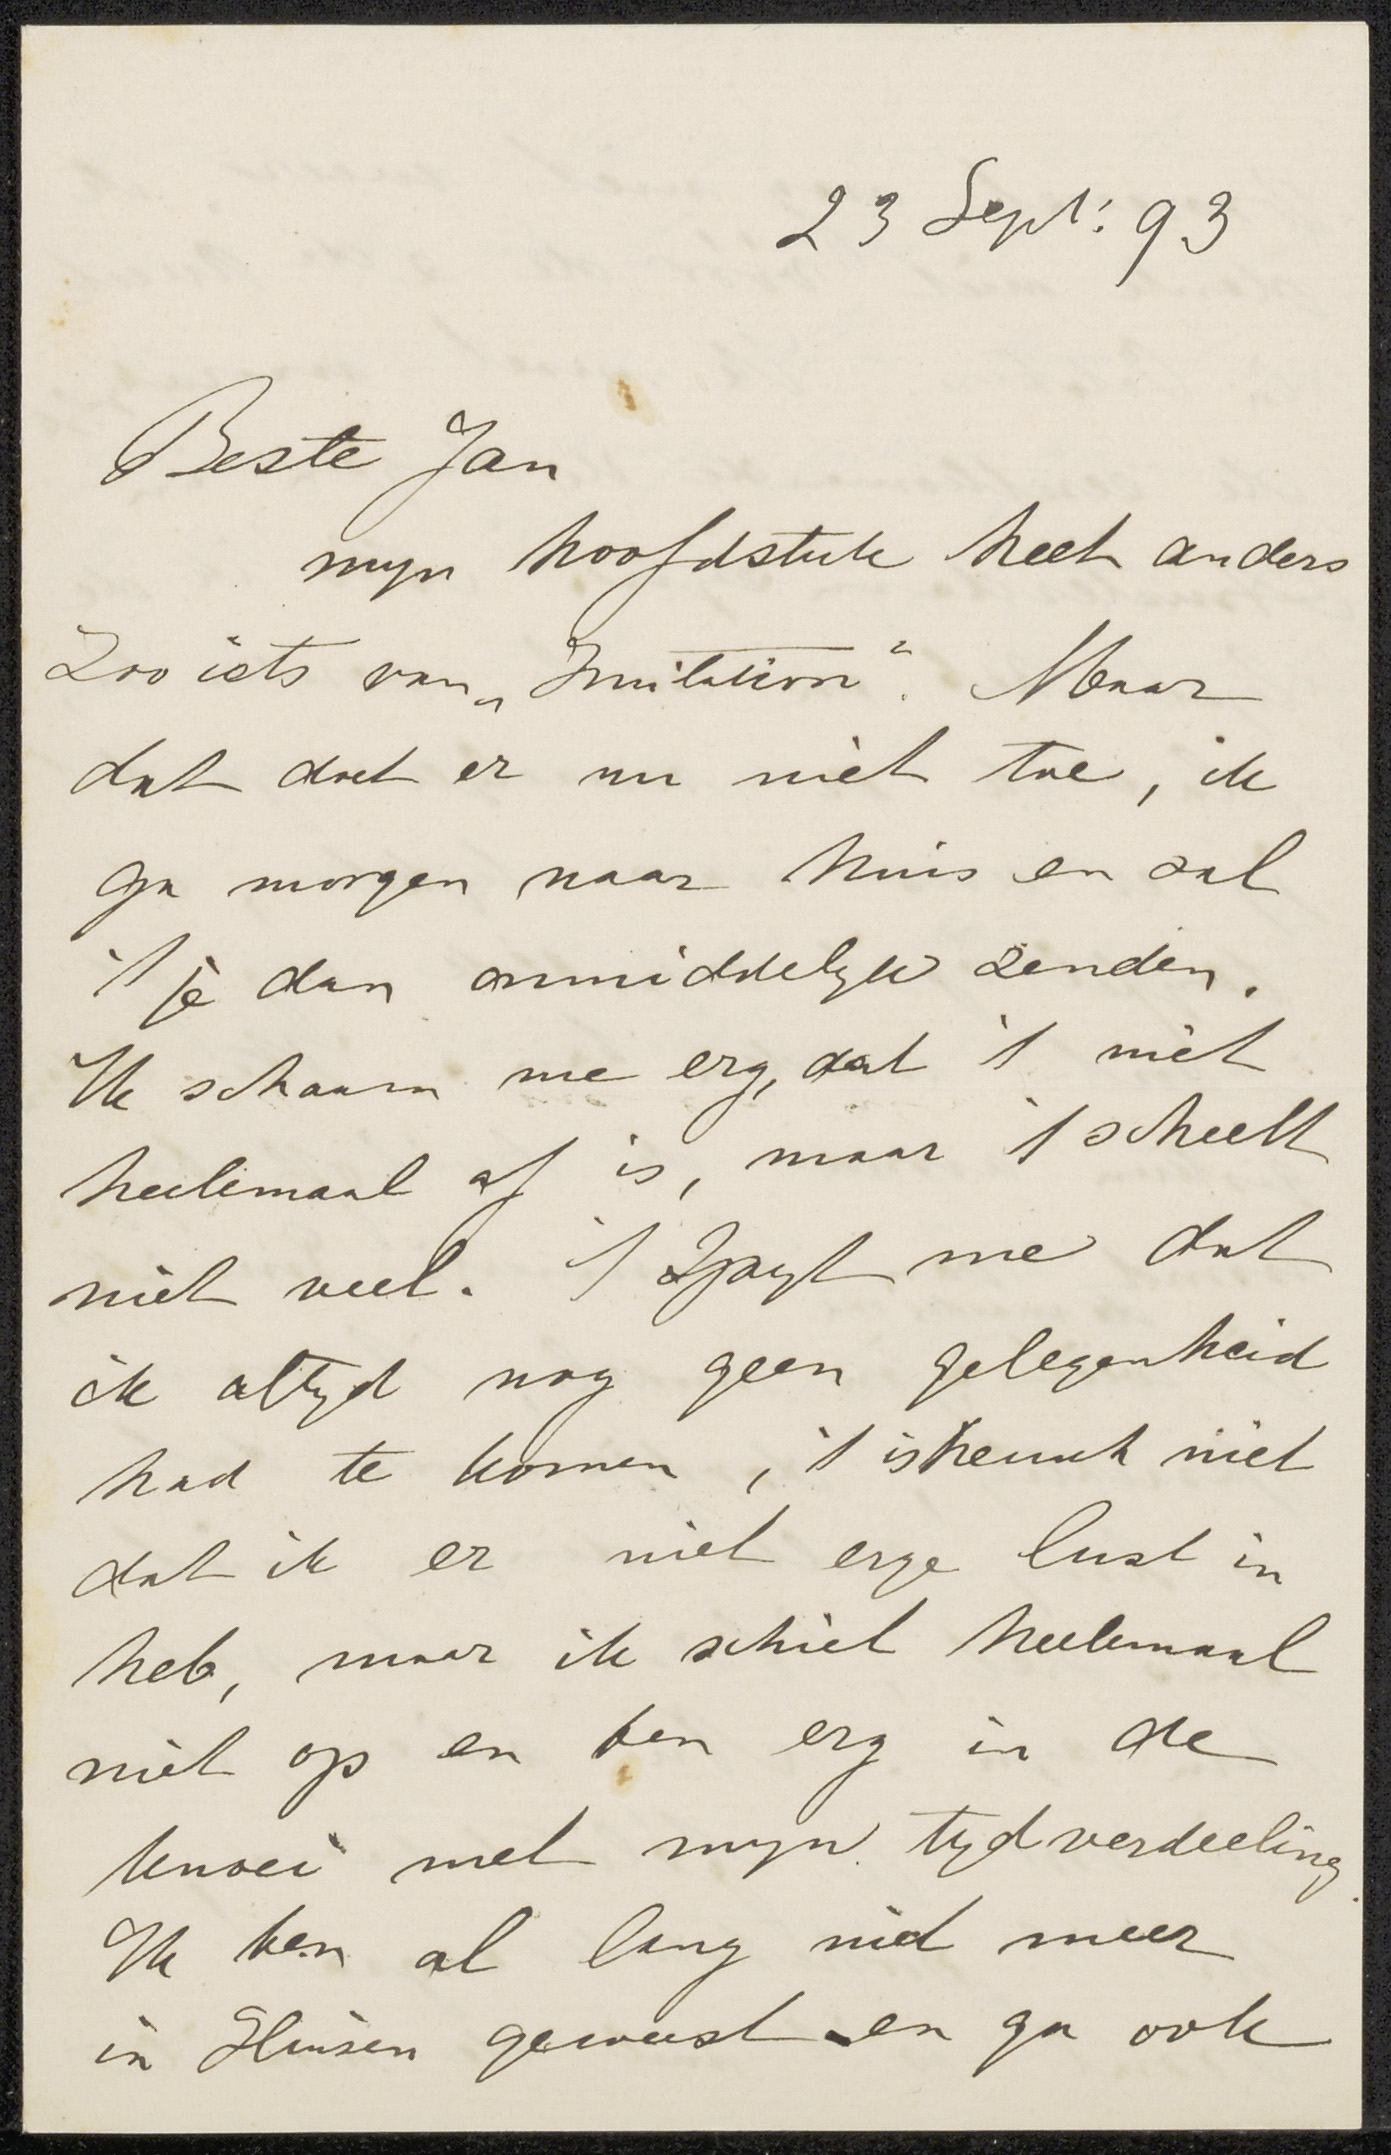 23 Sept: 93
Beste Jan
myn hoofdstuk heet anders
zoo iets van „Imitation". Maar
dat doet er nu niet toe, ik
ga morgen naar huis en zal
't je dan onmiddelyk zenden.
Ik schaam me erg, dat 't niet
heelemaal af is, maar 't scheelt
niet veel. 't Spyt me dat
ik altyd nog geen gelegenheid
had te komen, 't is heusch niet
dat ik er niet erge lust in
heb, maar ik schiet heelemaal
niet op en ben erg in de
knoei met myn tydverdeeling.
Ik ben al lang niet meer
in Huizen geweest en ga ook